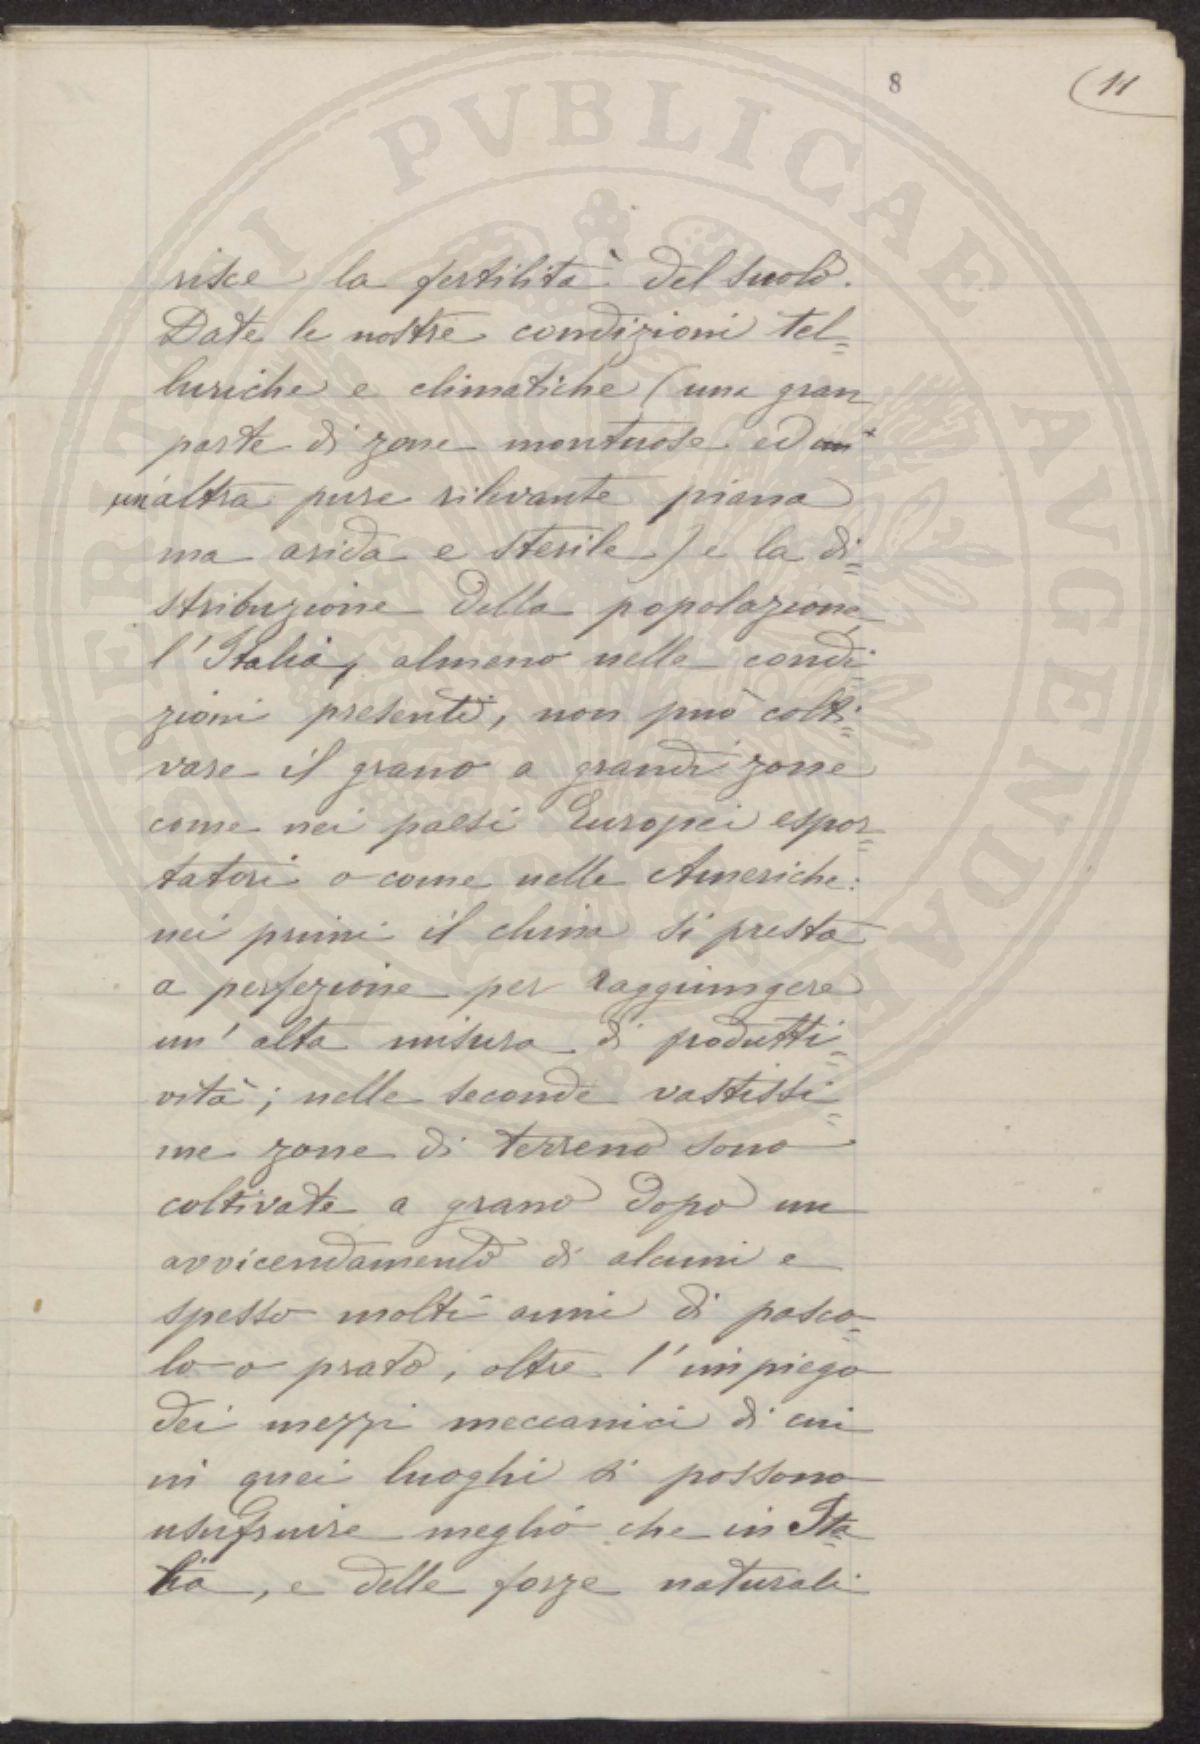 8
11
risce la fertilità del suolo.
Date le nostre condizioni tel=
luriche e climatiche (una gran
parte di zone montuose ed un'
un'altra pure rilevante piana
ma arida e sterile) e la di=
stribuzione della popolazione,
l'Italia, almeno nelle condi=
zioni presenti, non può colti=
vare il grano a grandi zone
come nei paesi Europei espor=
tatori o come nelle Americhe:
nei primi il clima si presta
a perfezione per raggiungere
un'alta misura di produtti=
vità; nelle seconde vastissi=
me zone di terreno sono
coltivate a grano dopo un
avvicendamento di alcuni e
spesso molti anni di pasco=
lo o prato, oltre l'impiego
dei mezzi meccanici di cui
in quei luoghi si possono
usufruire meglio che in Ita=
lia, e delle forze naturali
PVBLICAE AVGENDAE